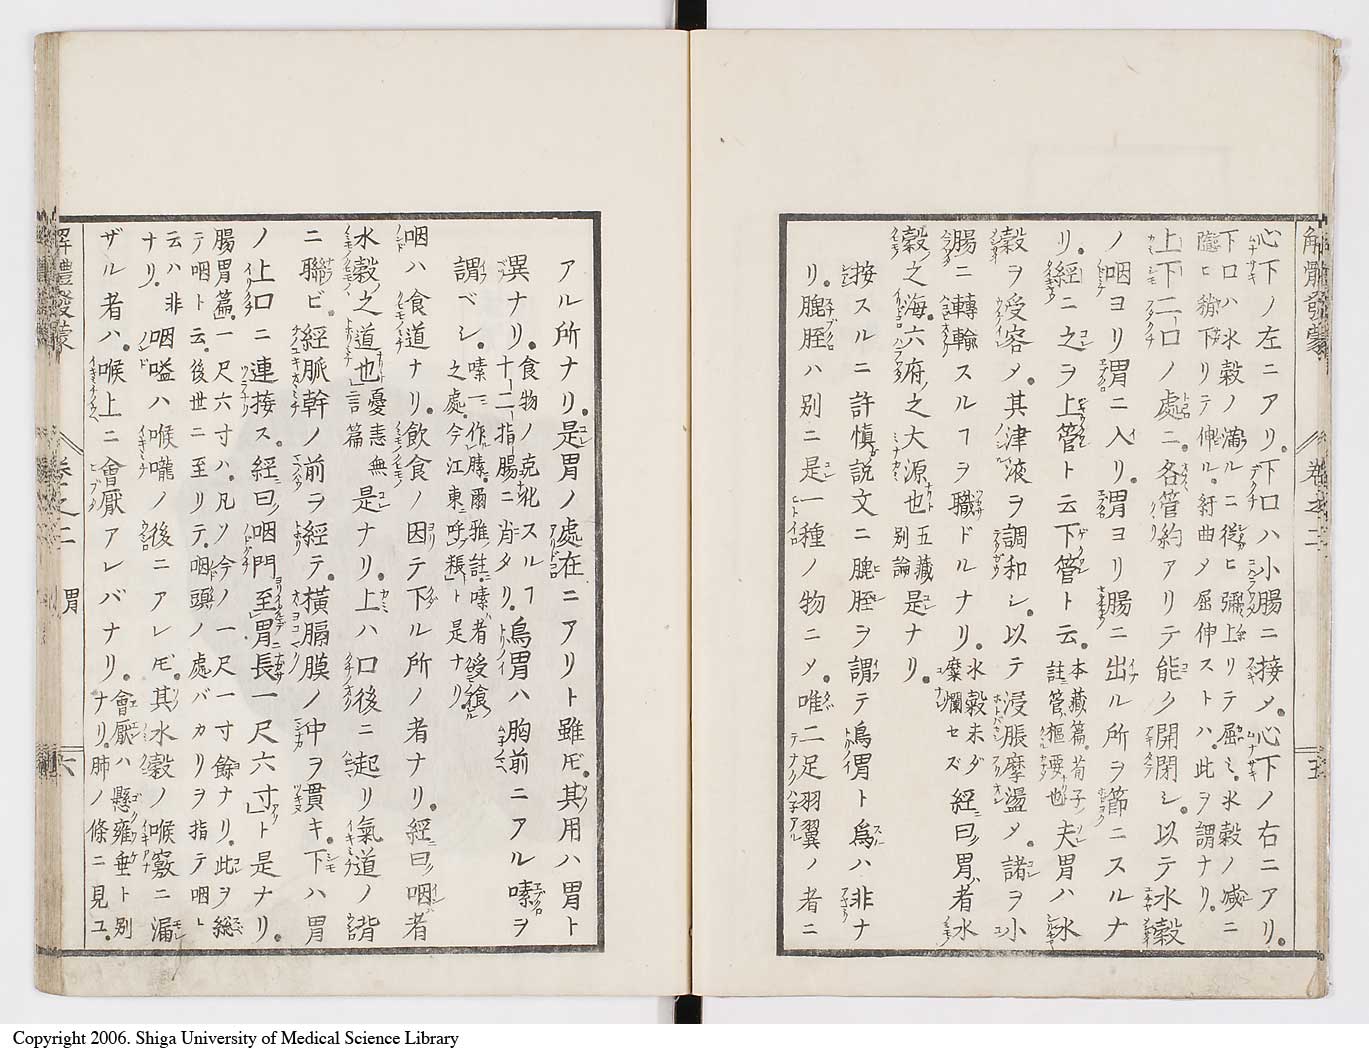 解體發蒙 卷之二 五
心下ノ左ニアリ。下口ハ小腸ニ接メ。心下ノ右ニアリ。
下口ハ水穀ノ滿ルニ從ヒ彌上リテ屈ミ。水穀ノ減ニ
隨ヒ稍下リテ伸ル。紆曲メ屈伸ストハ。此ヲ謂ナリ。
上下二口ノ處ニ。各管約アリテ能ク開閉シ。以テ水穀
ノ咽ヨリ胃ニ入リ。胃ヨリ腸ニ出ル所ヲ節ニスルナ
リ。經ニ之ヲ上管ト云下管ト云。本藏篇。荀子ノ註管樞要也夫胃ハ水
穀ヲ受容メ。其津液ヲ調和シ。以テ浸脹摩盪メ。諸ヲ小
腸ニ轉輸スルヿヲ職ドルナリ。水穀未ダ糜爛セズ經曰胃者水
穀之海。六府之大源也五藏別論是ナリ
按スルニ許愼說文ニ膍胵ヲ謂テ鳥胃ト爲ハ非ナ
リ。膍胵ハ別ニ是一種ノ物ニメ。唯二足羽翼ノ者ニ
アル所ナリ。是胃ノ處在ニアリト雖𪜈。其用ハ胃ト
異ナリ。食物ノ克化スルヿ十二指腸ニ肖タリ。鳥胃ハ胸前ニアル嗉ヲ
謂ベシ。嗉一作膆。爾雅註。嗉者受食之處。今江東呼粻ト是ナリ。
咽ハ食道ナリ。飮食ノ因テ下ル所ノ者ナリ。經曰咽者
水穀之道也憂恚無言篇是ナリ。上ハ口後ニ起リ氣道ノ背
ニ聯ビ。經脈幹ノ前ヲ經テ。橫膈膜ノ中ヲ貫キ。下ハ胃
ノ上口ニ連接ス。經曰咽門至胃長一尺六寸ト是ナリ。
腸胃篇。一尺六寸ハ。凡ソ今ノ一尺一寸餘ナリ。此ヲ總
テ咽ト云。後世ニ至リテ。咽頭ノ處バカリヲ指テ咽ト
云ハ非ナリ。咽嗌ハ喉嚨ノ後ニアレ𪜈。其水穀ノ喉竅ニ漏
ザル者ハ。喉上ニ會厭アレバナリ。會厭ハ懸雍垂ト別ナリ。肺ノ條ニ見ユ。
解體發蒙 卷之二 胃 六
Copyright 2006. Shiga University of Medical Science Library